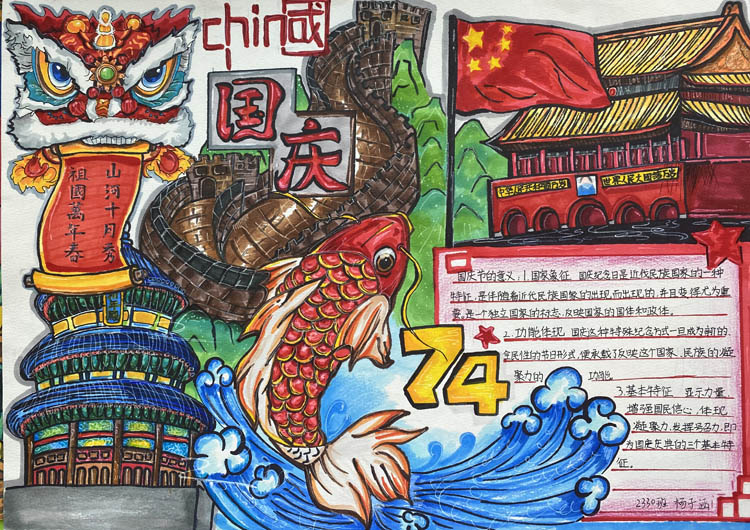 chin國
国庆
山河十月秀
祖國萬年春
74
国庆节的意义:1.国家象征 国庆纪念日是近代民族国家的一种
特征,是伴随着近代民族国家的出现而出现的,并且变得尤为重
要,是一个独立国家的标志,反映国家的国体和政体。
2.功能体现 国庆这种特殊纪念方式一旦成为新的、
全民性的节日形式,便承载了反映这个国家、民族的凝
聚力的 功能
3.基本特征 显示力量
增强国民信心,体现
凝聚力,发挥号召力,即
为国庆庆典的三个基本特
征。
2330班 杨子